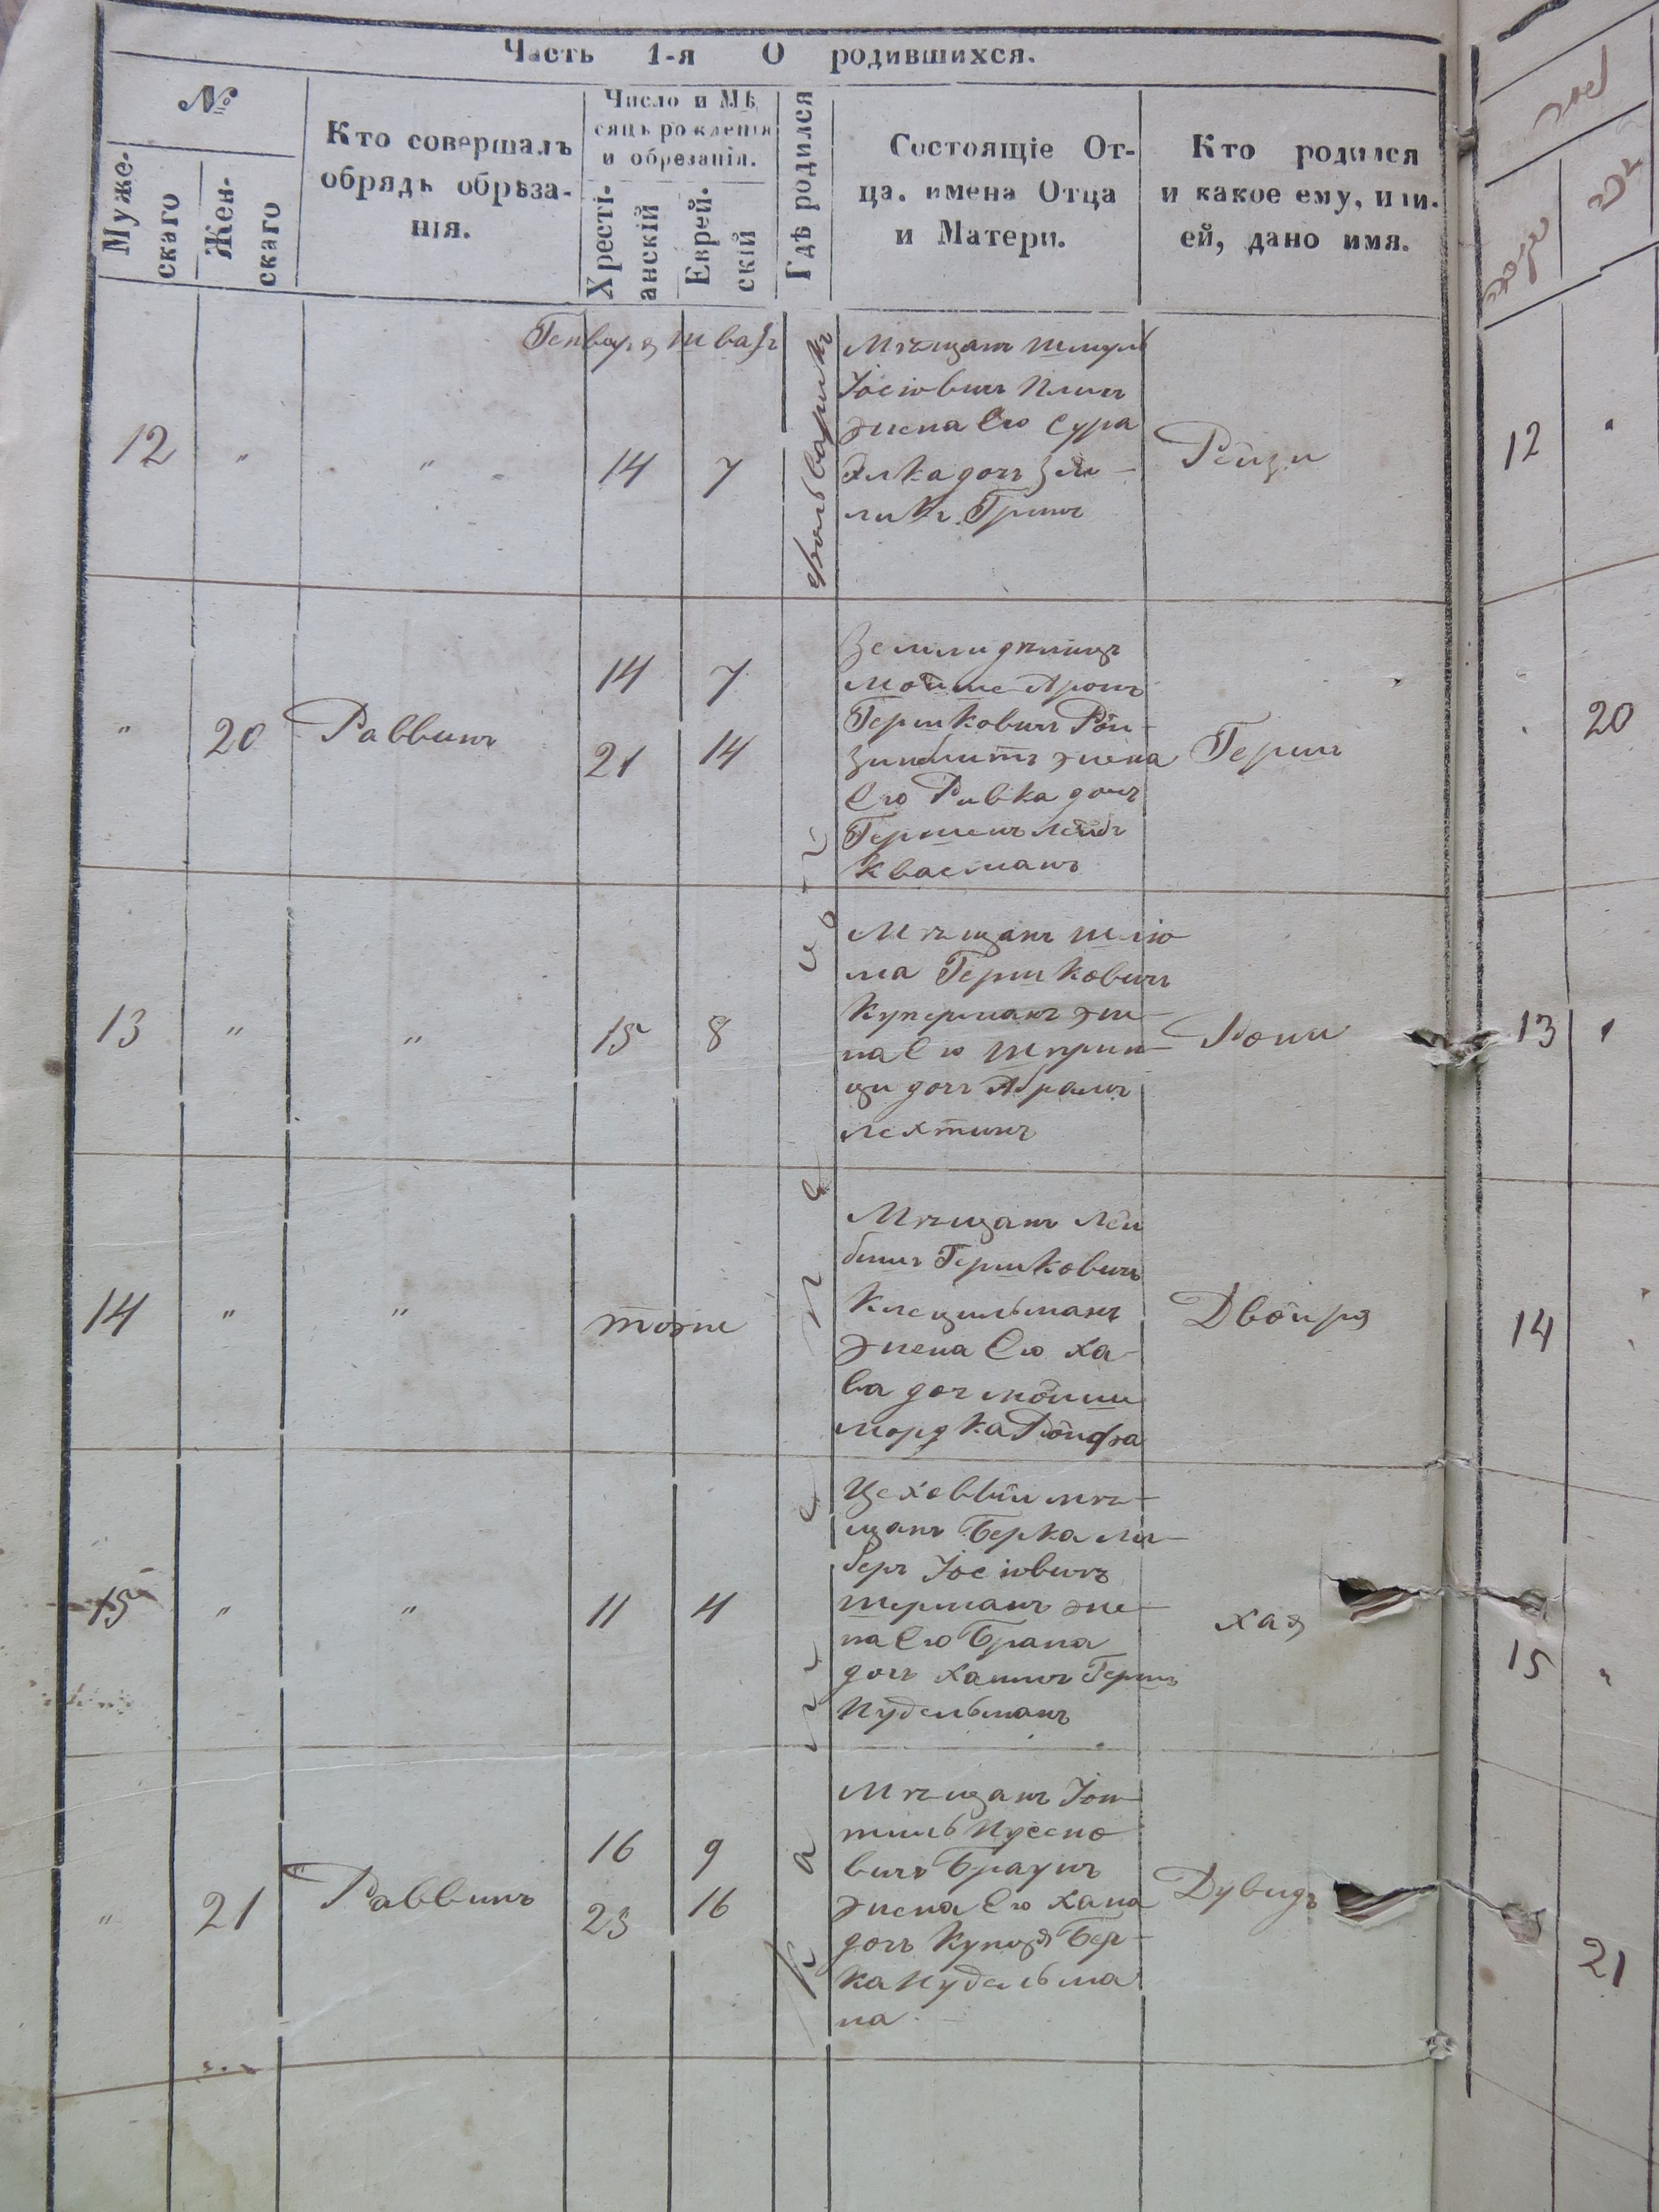 Часть 1-я О родившихся.
№
Муже-
скаго
Жен-
скаго
Кто совершалъ
обрядъ обрѣза-
нія.
Число и Мѣ
сяцъ рожденія
и обрезанія.
Хрестi-
анскій
Еврей-
скій
Гдѣ родился
Состоящіе От-
ца, имена Отца
и Матери.
Кто родился
и какое ему, или
ей, дано имя.
Генваря шватъ
12 " " 14 7
Мѣщанъ Шмуль
Іосіовичъ
жена Его Сура
Элка дочь Зе
ликъ Гринъ
Рейзи
12 "
" 20 Раввинъ
14 7
21 14
Земледѣлецъ
Мойше Аронъ
Гершковичъ Рой
жена
Его Ривка дочь
Гершенъ Лейбъ
Квасманъ
Гершъ
20
13 " " 15 8
Мѣщанъ Шлiо
ма Гершковичъ
Куперманъ же
на Его Шприн
ци дочь Абрамъ
Лехтинъ
13 "
14 " " тоже
Мѣщанъ Лей
бишъ Гершковичъ
жена Его Ха
ва доч Мойши
Мордка
Двойря
14
15 " " 11 4
Цеховый мѣ
щанъ Берка Ли
беръ Іосіовичъ
Шерманъ же
на Его Брана
дочь Хаимъ Гершъ
Нудельманъ
хая
15 "
" 21 Раввинъ
16 9
23 16
Мѣщанъ Іон
вичъ Браунъ
жена Его Хана
дочь Купця Бер
ка Нудельма
на
Дувидъ
21